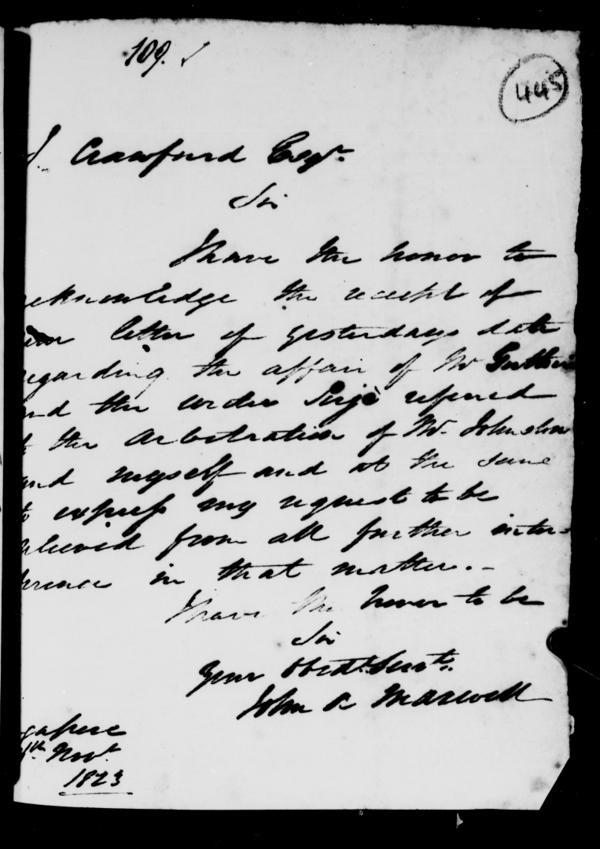 109.
445
J. Crawfurd Esqr.
Sir
I have the honor to
acknowledge the receipt of
your letter of yesterdays date
regarding the affair of Mr Guthrie
and the order refered
to the arbitration of Mr. Johnston
and myself and at the same
to express my request to be
relieved from all further inter-
ference in that matter. -
I have the honor to be
Sir
Your Obedt. Servt.
John A Maxwell
gapore
th Novr
1823